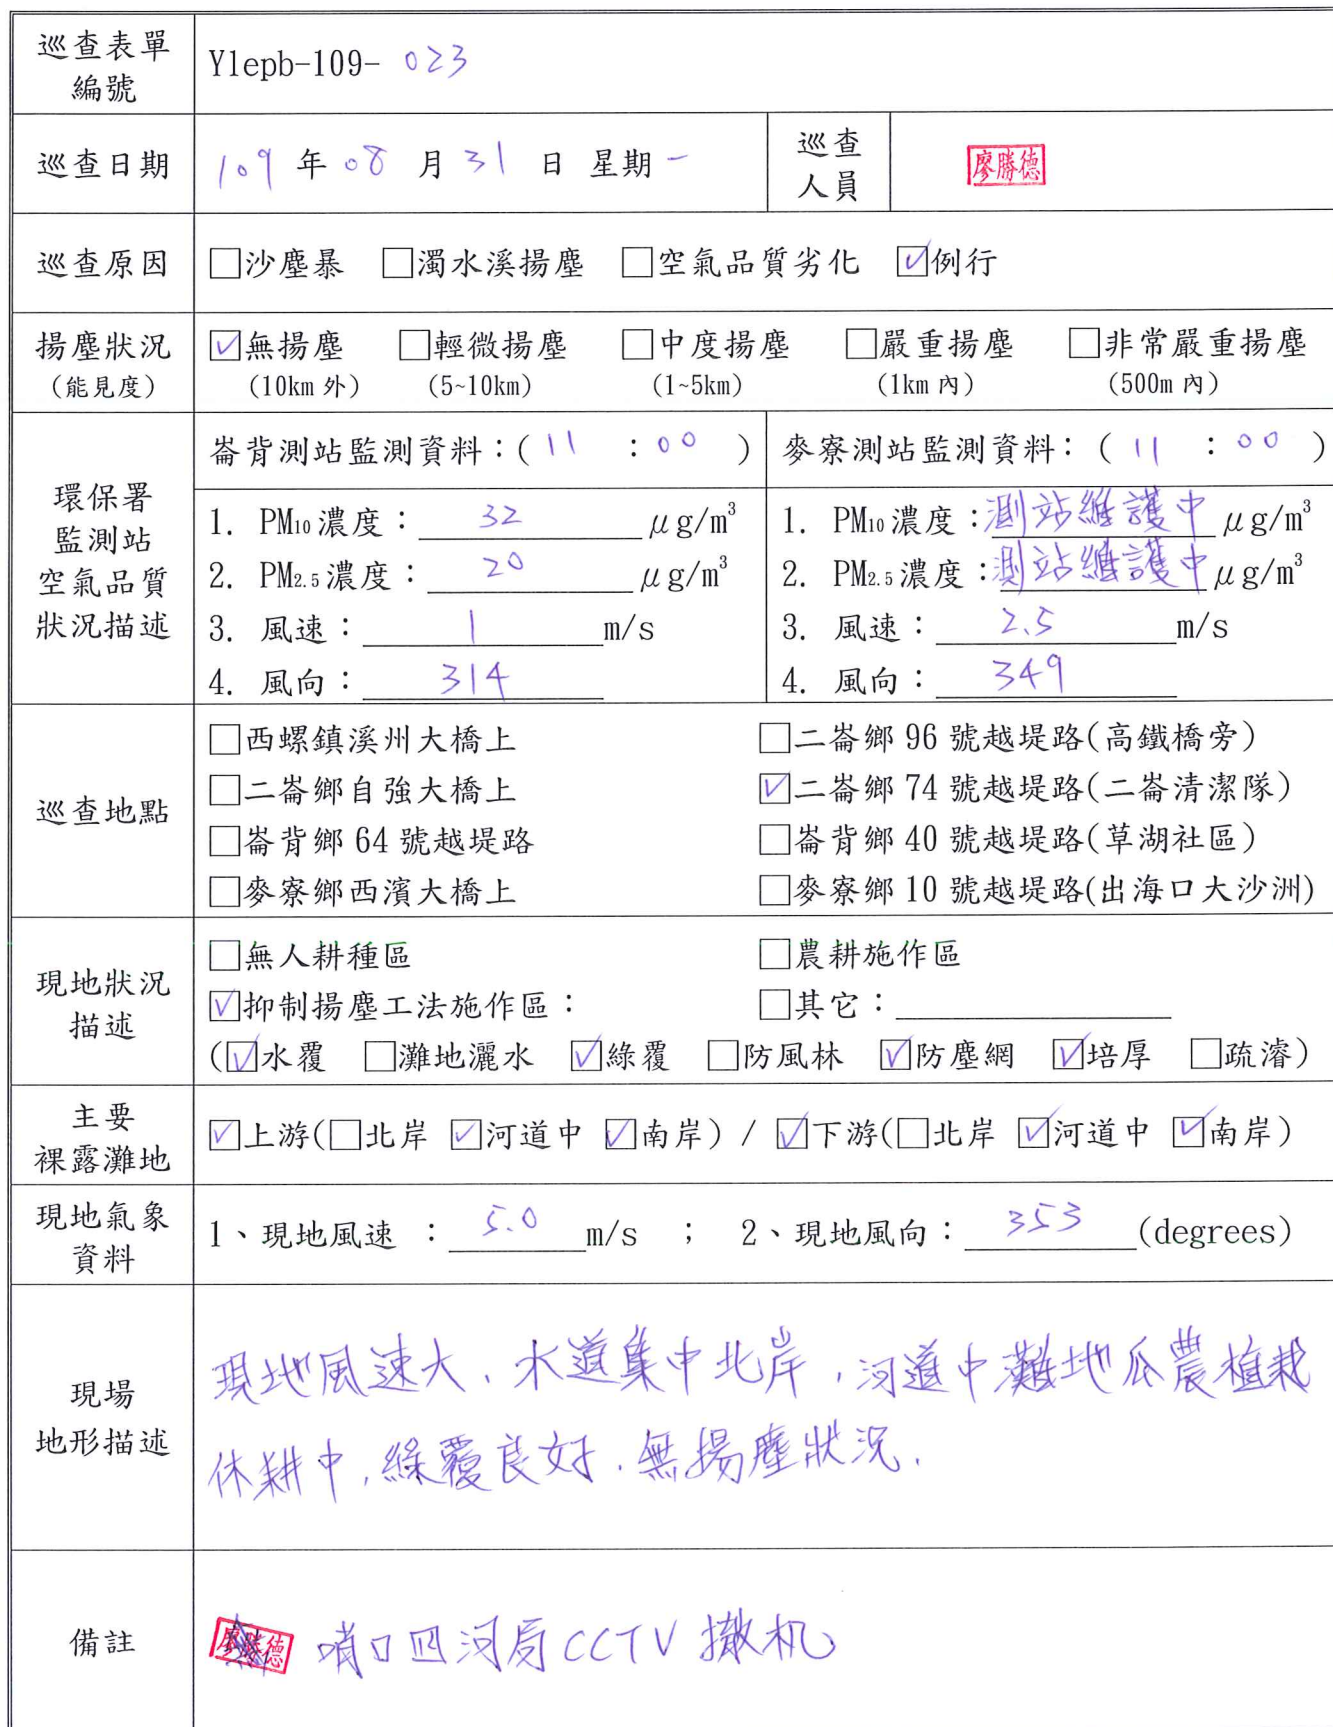 巡查表單
編號
Ylepb-109- 023
巡查日期
109 年 08 月 31 日 星期 一
巡查
人員
廖勝德
巡查原因
□沙塵暴 □濁水溪揚塵 □空氣品質劣化 ☑例行
揚塵狀況
(能見度)
☑無揚塵 □輕微揚塵 □中度揚塵 □嚴重揚塵 □非常嚴重揚塵
(10km 外) (5~10km) (1~5km) (1km 內) (500m 內)
環保署
監測站
空氣品質
狀況描述
崙背測站監測資料：( 11 : 00 )
1. PM10 濃度： 32 μg/m³
2. PM2.5 濃度： 20 μg/m³
3. 風速： 1 m/s
4. 風向： 314
麥寮測站監測資料： ( 11 : 00 )
1. PM10 濃度：測站維護中 μg/m³
2. PM2.5 濃度：測站維護中 μg/m³
3. 風速： 2.5 m/s
4. 風向： 349
巡查地點
□西螺鎮溪州大橋上 □二崙鄉 96 號越堤路(高鐵橋旁)
□二崙鄉自強大橋上 ☑二崙鄉 74 號越堤路(二崙清潔隊)
□崙背鄉 64 號越堤路 □崙背鄉 40 號越堤路(草湖社區)
□麥寮鄉西濱大橋上 □麥寮鄉 10 號越堤路(出海口大沙洲)
現地狀況
描述
□無人耕種區 □農耕施作區
☑抑制揚塵工法施作區： □其它：
(☑水覆 □灘地灑水 ☑綠覆 □防風林 ☑防塵網 ☑培厚 □疏濬)
主要
裸露灘地
☑上游(□北岸 ☑河道中 ☑南岸) / ☑下游(□北岸 ☑河道中 ☑南岸)
現地氣象
資料
1、現地風速 ： 5.0 m/s ； 2、現地風向： 353 (degrees)
現場
地形描述
現地風速大、水道集中北岸，河道中灘地瓜農植栽
休耕中，綠覆良好．無揚塵狀況．
備註
廖勝德 哨口四河局CCTV撤机